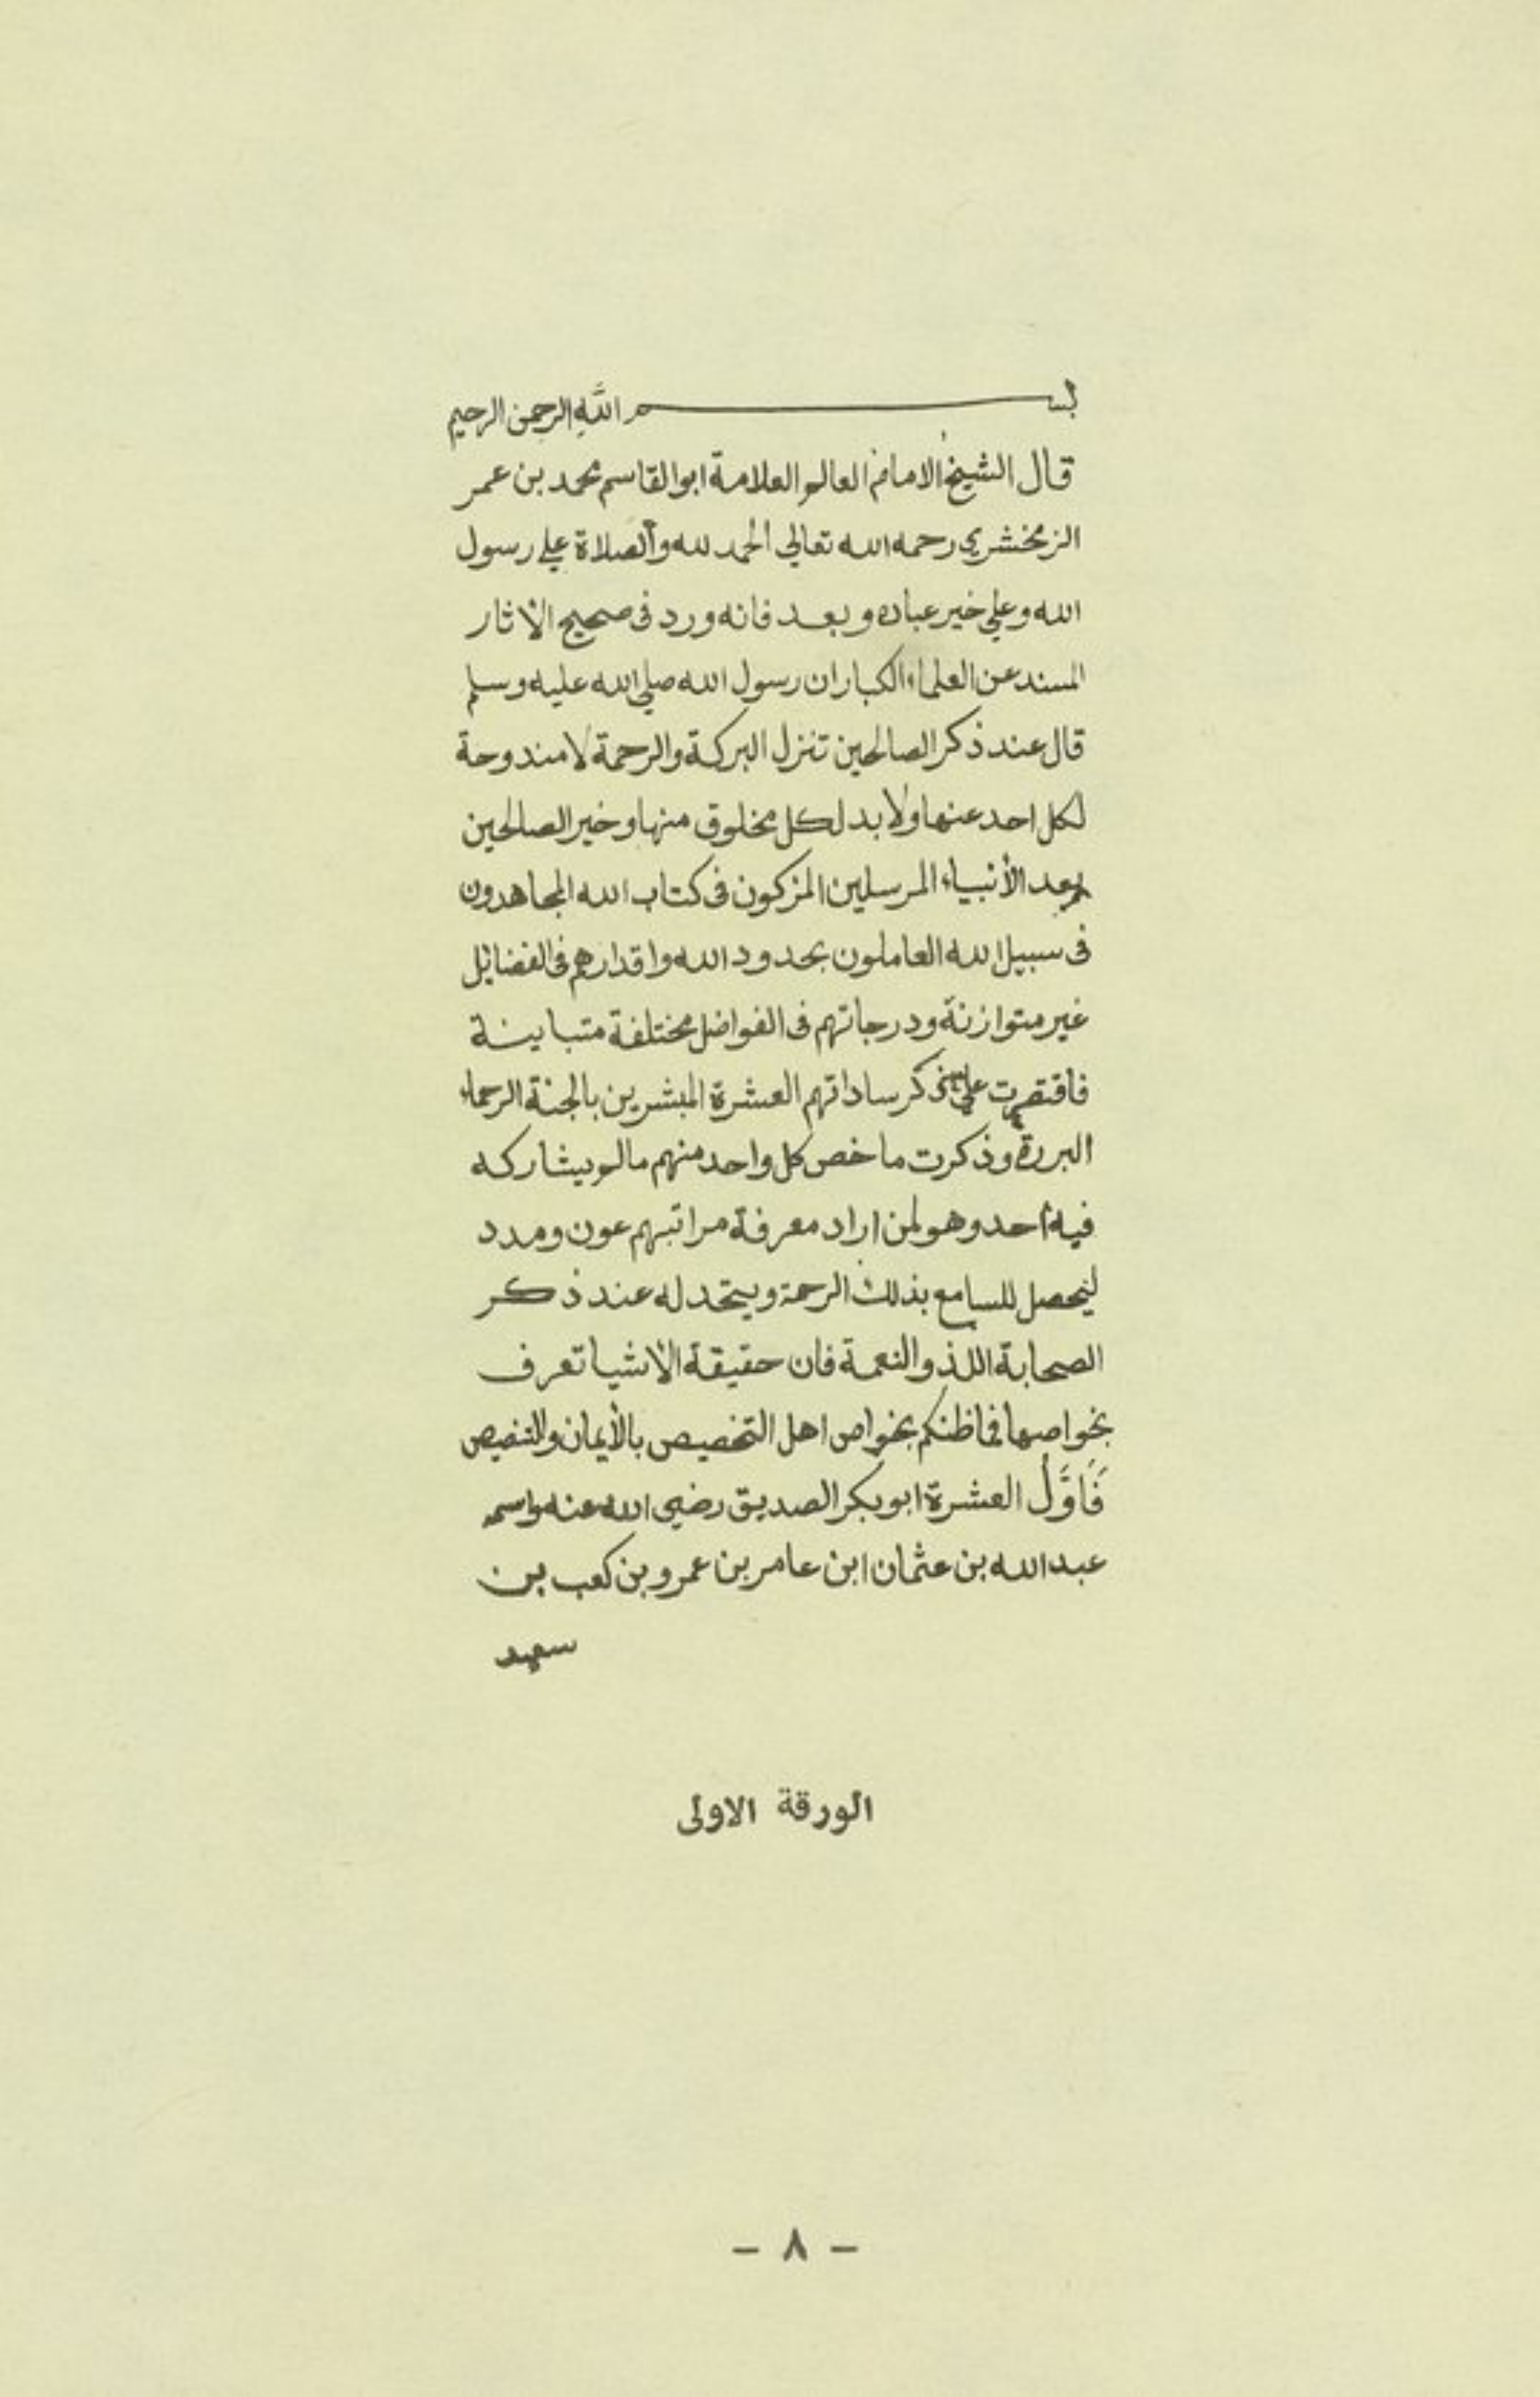 بسم الله الرحمن الرحيم
قال الشيخ الامام العالم العلامة ابو القاسم محمد بن عمر
الزمخشري رحمه الله تعالي الحمد لله والصلاة علي رسول
الله وعلي خير عباده وبعد فانه ورد فى صحيح الأثار
المسند عن العلماء الكبار ان رسول الله صلي الله عليه وسلم
قال عند ذكر الصالحين تنزل البركة والرحمة لا مندوحة
لكل احد عنها ولا بد لكل مخلوق منها وخير الصالحين
بعد الأنبياء المرسلين المزكون فى كتاب الله المجاهدون
فى سبيل الله العاملون بحدود الله واقدارهم فى الفضائل
غير متوازنة ودرجاتهم فى الفواضل مختلفة متباينة
فاقتصرت علي ذكر ساداتهم العشرة المبشرين بالجنة الرحماء
البررة وذكرت ما خص كل واحد منهم مالم يشاركه
فيه أحد وهو لمن اراد معرفة مراتبهم عون ومدد
ليحصل للسامع بذلك الرحمة ويتحد له عند ذكر
الصحابة اللذ والنعمة فان حقيقة الأشيا تعرف
بخواصها فما ظنكم بخواص اهل التخصيص بالأيمان والتنصيص
فَاوَّلُ العشرة ابو بكر الصديق رضي الله عنه واسمه
عبد الله بن عثمان ابن عامر بن عمرو بن كعب بن
سعيد
الورقة الاولى
- ٨ -